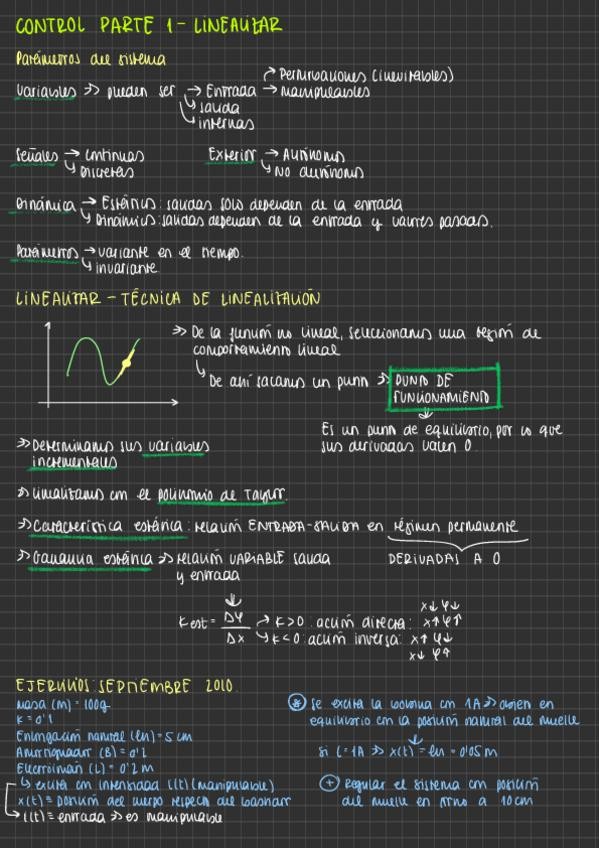 CONTROL PARTE 1 - LINEALIZAR
Parámetros del sistema
Variables → pueden ser → Entrada → Perturbaciones (inevitables)
→ manipulables
↳ salida
↳ internas
Señales → continuas
↳ Discretas
Exterior → Autónomos
↳ No autónomos
Dinámica → Estáticos: salidas solo dependen de la entrada
↳ Dinámicos: salidas dependen de la entrada y valores pasados.
Parámetros → variante en el tiempo.
↳ invariante
LINEALIZAR - TÉCNICA DE LINEALIZACIÓN
⇒ De la función no lineal, seleccionamos una región de
comportamiento lineal
↳ De ahí sacamos un punto ⇒ PUNTO DE
FUNCIONAMIENTO
Es un punto de equilibrio, por lo que
sus derivadas valen 0
⇒ Determinamos sus variables
incrementales
⇒ linealizamos con el polinomio de Taylor.
⇒ Característica estática: relación ENTRADA-SALIDA en régimen permanente
DERIVADAS A 0
⇒ Ganancia estática ⇒ relación VARIABLE salida
y entrada
Kest = Δy / Δx
→ K>0: acción directa: x↓ y↓
x↑ y↑
↳ K<0: acción inversa: x↑ y↓
x↓ y↑
EJERCICIOS: SEPTIEMBRE 2010.
masa (m) = 100g
K = 0'1
Enlongación natural (ln) = 5 cm
Amortiguador (B) = 0'2
Electroimán (L) = 0'2 m
↳ excita con intensidad i(t) (manipulable)
x(t) ≡ posición del cuerpo respecto del
i(t) ≡ entrada ⇒ es manipulable
Se excita la bobina con 1A ⇒ en
equilibrio con la posición natural del muelle
si i=1A ⇒ x(t) = ln = 0'05 m
+ Regular el sistema con posición
del muelle en torno a 10cm